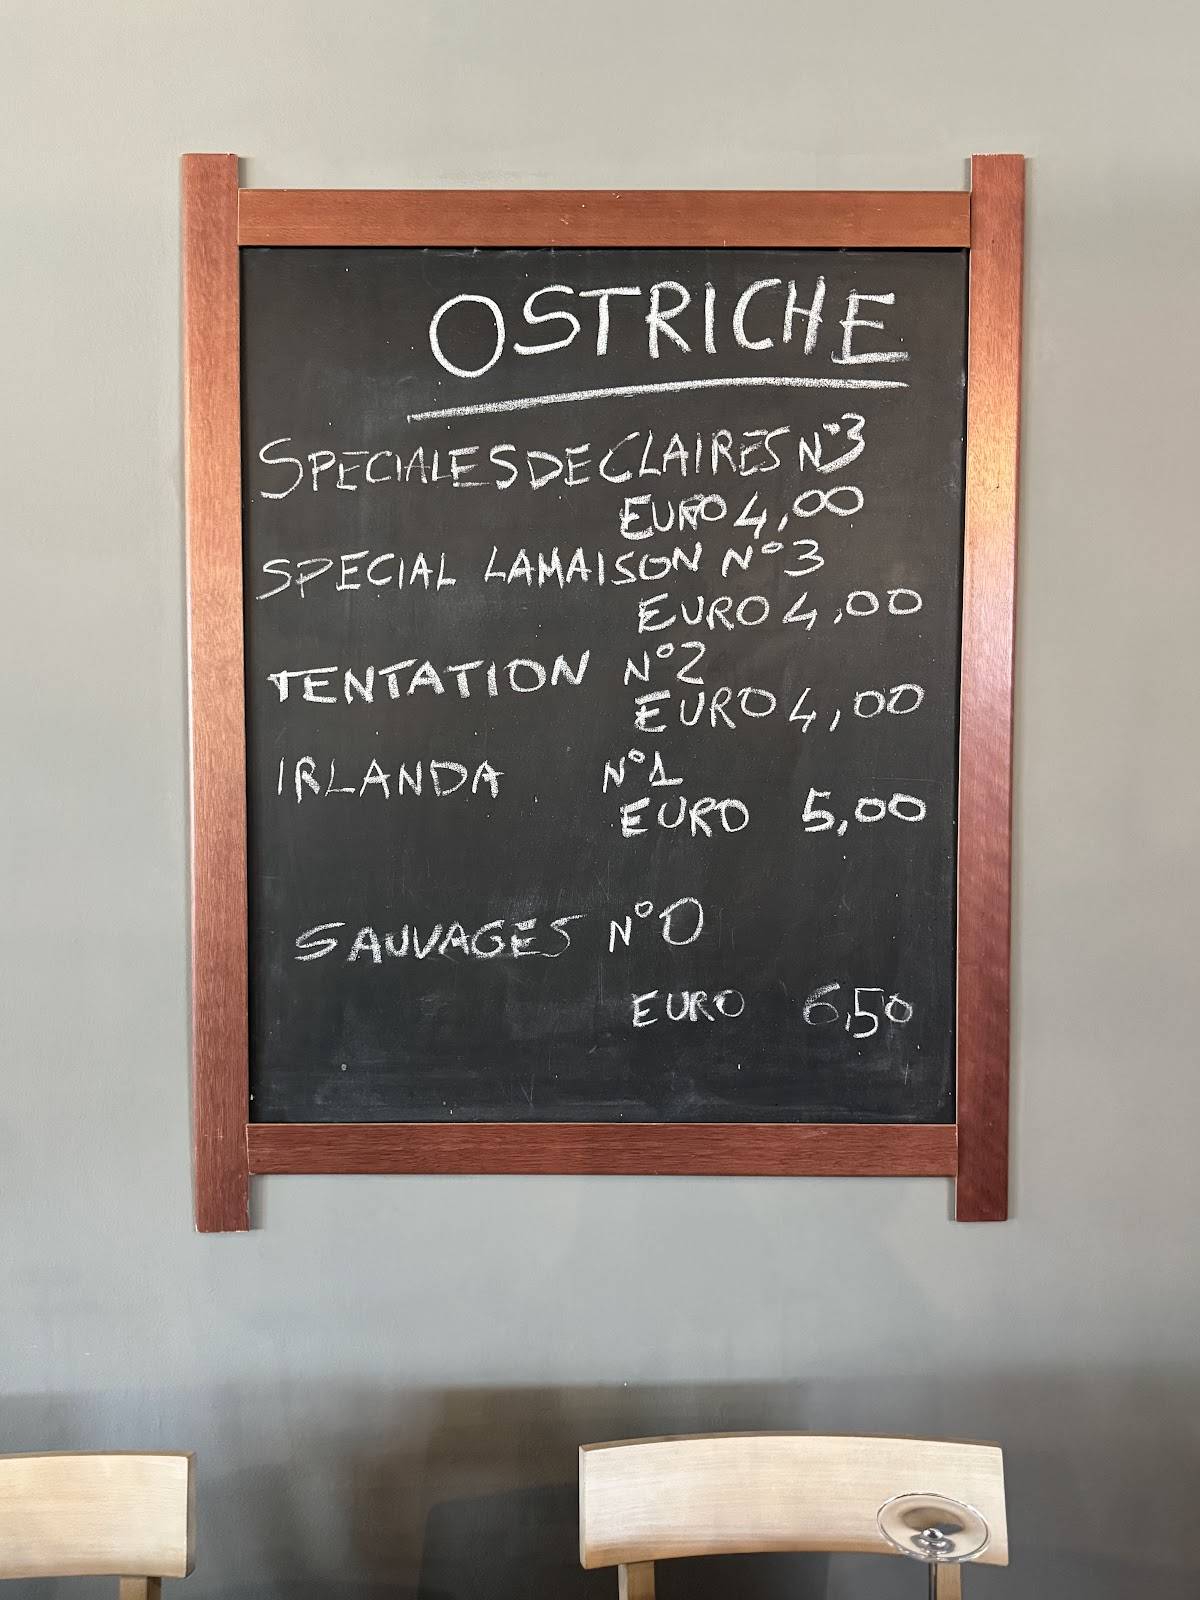 OSTRICHE
SPECIALES DE CLAIRES N°3
EURO 4,00
SPECIAL LAMAISON N°3
EURO 4,00
TENTATION N°2
EURO 4,00
IRLANDA N°1
EURO 5,00
SAUVAGES N°0
EURO 6,50